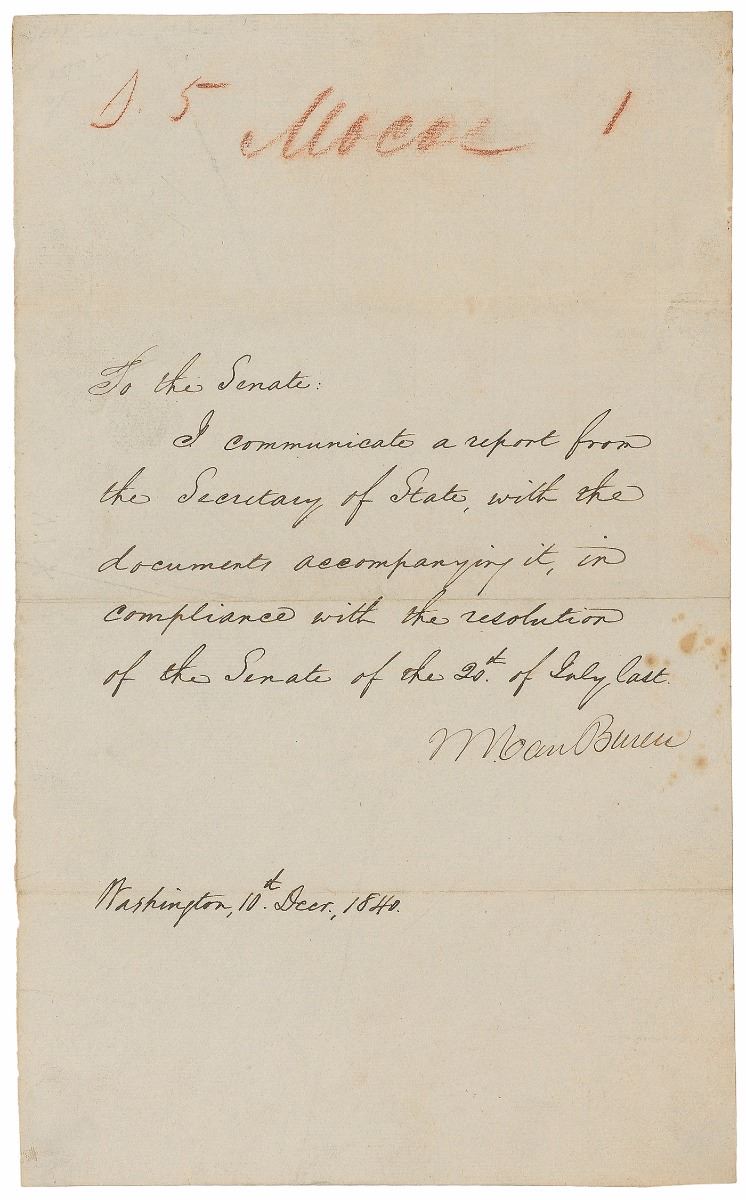 5 1
To the Senate:
I communicate a report from
the Secretary of State, with the
documents accompanying it, in
compliance with the resolution
of the Senate of the 20th. of July last.
M Van Buren
Washington, 10th. Decr., 1840.